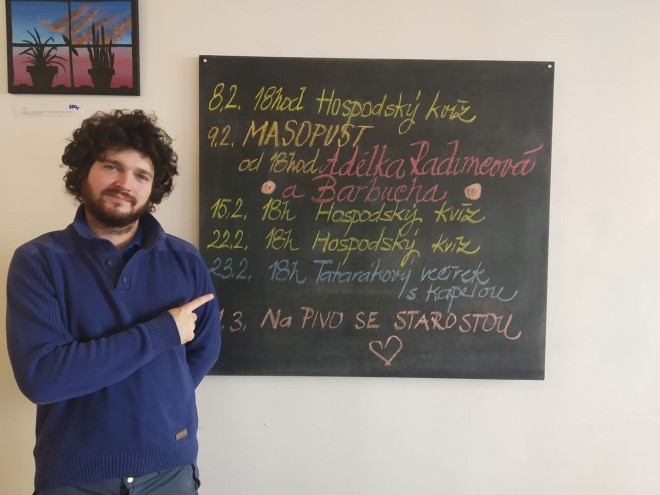 8.2. 18hod Hospodský kvíz
9.2. MASOPUST
od 18hod Adélka Radimcová
a Barbucha
15.2. 18h Hospodský kvíz
22.2. 18h Hospodský kvíz
23.2. 18h Tatarákový večírek
s kapelou
.3. NA PIVO SE STAROSTOU